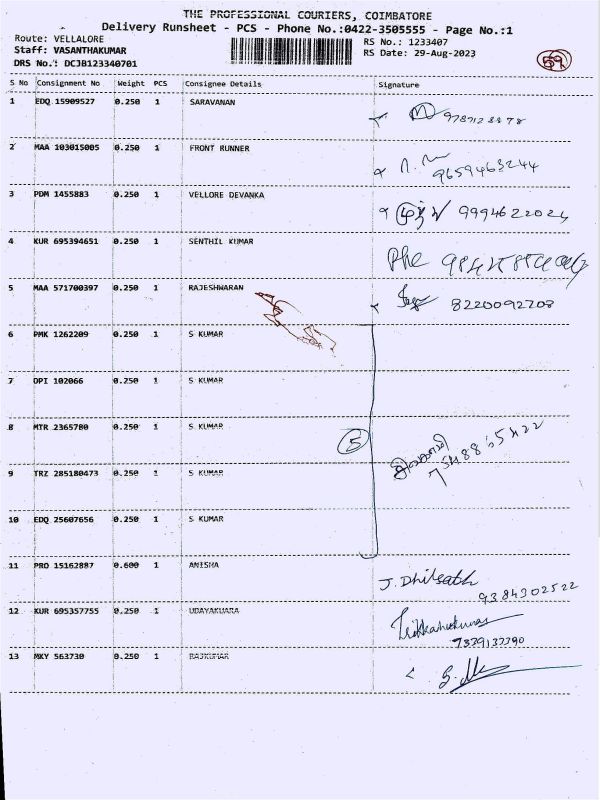 THE PROFESSIONAL COURIERS, COIMBATORE
Delivery Runsheet - PCS - Phone No.:0422-3505555 - Page No.:1
Route: VELLALORE
RS No.: 1233407
Staff: VASANTHAKUMAR
RS Date: 29-Aug-2023
DRS No.: DCJB123340701
59
S No Consignment No Weight PCS Consignee Details Signature
1 EDQ 15909527 0.250 1 SARAVANAN
2 MAA 103015005 0.250 1 FRONT RUNNER 9659463244
3 PDM 1455883 0.250 1 VELLORE DEVANKA 9994622024
4 KUR 695394651 0.250 1 SENTHIL KUMAR
5 MAA 571700397 0.250 1 RAJESHWARAN 8220092708
6 PMK 1262209 0.250 1 S KUMAR
7 OPI 102066 0.250 1 S KUMAR
8 MTR 2365780 0.250 1 S KUMAR
5
9 TRZ 285180473 0.250 1 S KUMAR
10 EDQ 25607656 0.250 1 S KUMAR
11 PRO 15162887 0.600 1 ANISHA J. 9384302522
12 KUR 695357755 0.250 1 UDAYAKUARA 7339137390
13 MKY 563730 0.250 1 RAJKUMAR